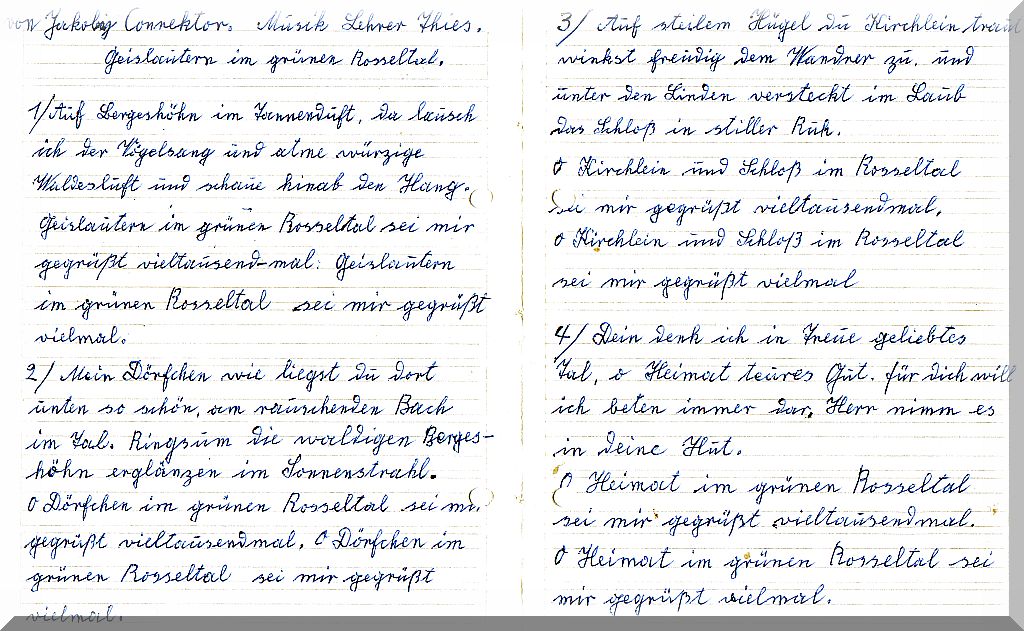 von Jakoby Connektor. Musik Lehrer Thies.
Geislautern im grünen Rosseltal.
1/ Auf Bergeshöhn im Tannenduft, da lausch
ich der Vögelsang und atme würzige
Waldesluft und schaue hinab den Hang.
Geislautern im grünen Rosseltal sei mir
gegrüßt vieltausend-mal: Geislautern
im grünen Rosseltal sei mir gegrüßt
vielmal.
2/ Mein Dörfchen wie liegst du dort
unten so schön, am rauschenden Bach
im Tal. Ringsum die waldigen Berges-
höhn erglänzen im Sonnenstrahl.
O Dörfchen im grünen Rosseltal sei mir
gegrüßt vieltausendmal. O Dörfchen im
grünen Rosseltal sei mir gegrüßt
vielmal.
3/ Auf steilem Hügel du Kirchlein traut
winkst freudig dem Wandrer zu. und
unter den Linden versteckt im Laub
das Schloß in stiller Ruh.
O Kirchlein und Schloß im Rosseltal
sei mir gegrüßt vieltausendmal.
O Kirchlein und Schloß im Rosseltal
sei mir gegrüßt vielmal
4/ Dein denk ich in Treue geliebtes
Tal, o Heimat teures Gut. für dich will
ich beten immer dar, Herr nimm es
in deine Hut.
O Heimat im grünen Rosseltal
sei mir gegrüßt vieltausendmal.
O Heimat im grünen Rosseltal sei
mir gegrüßt vielmal.